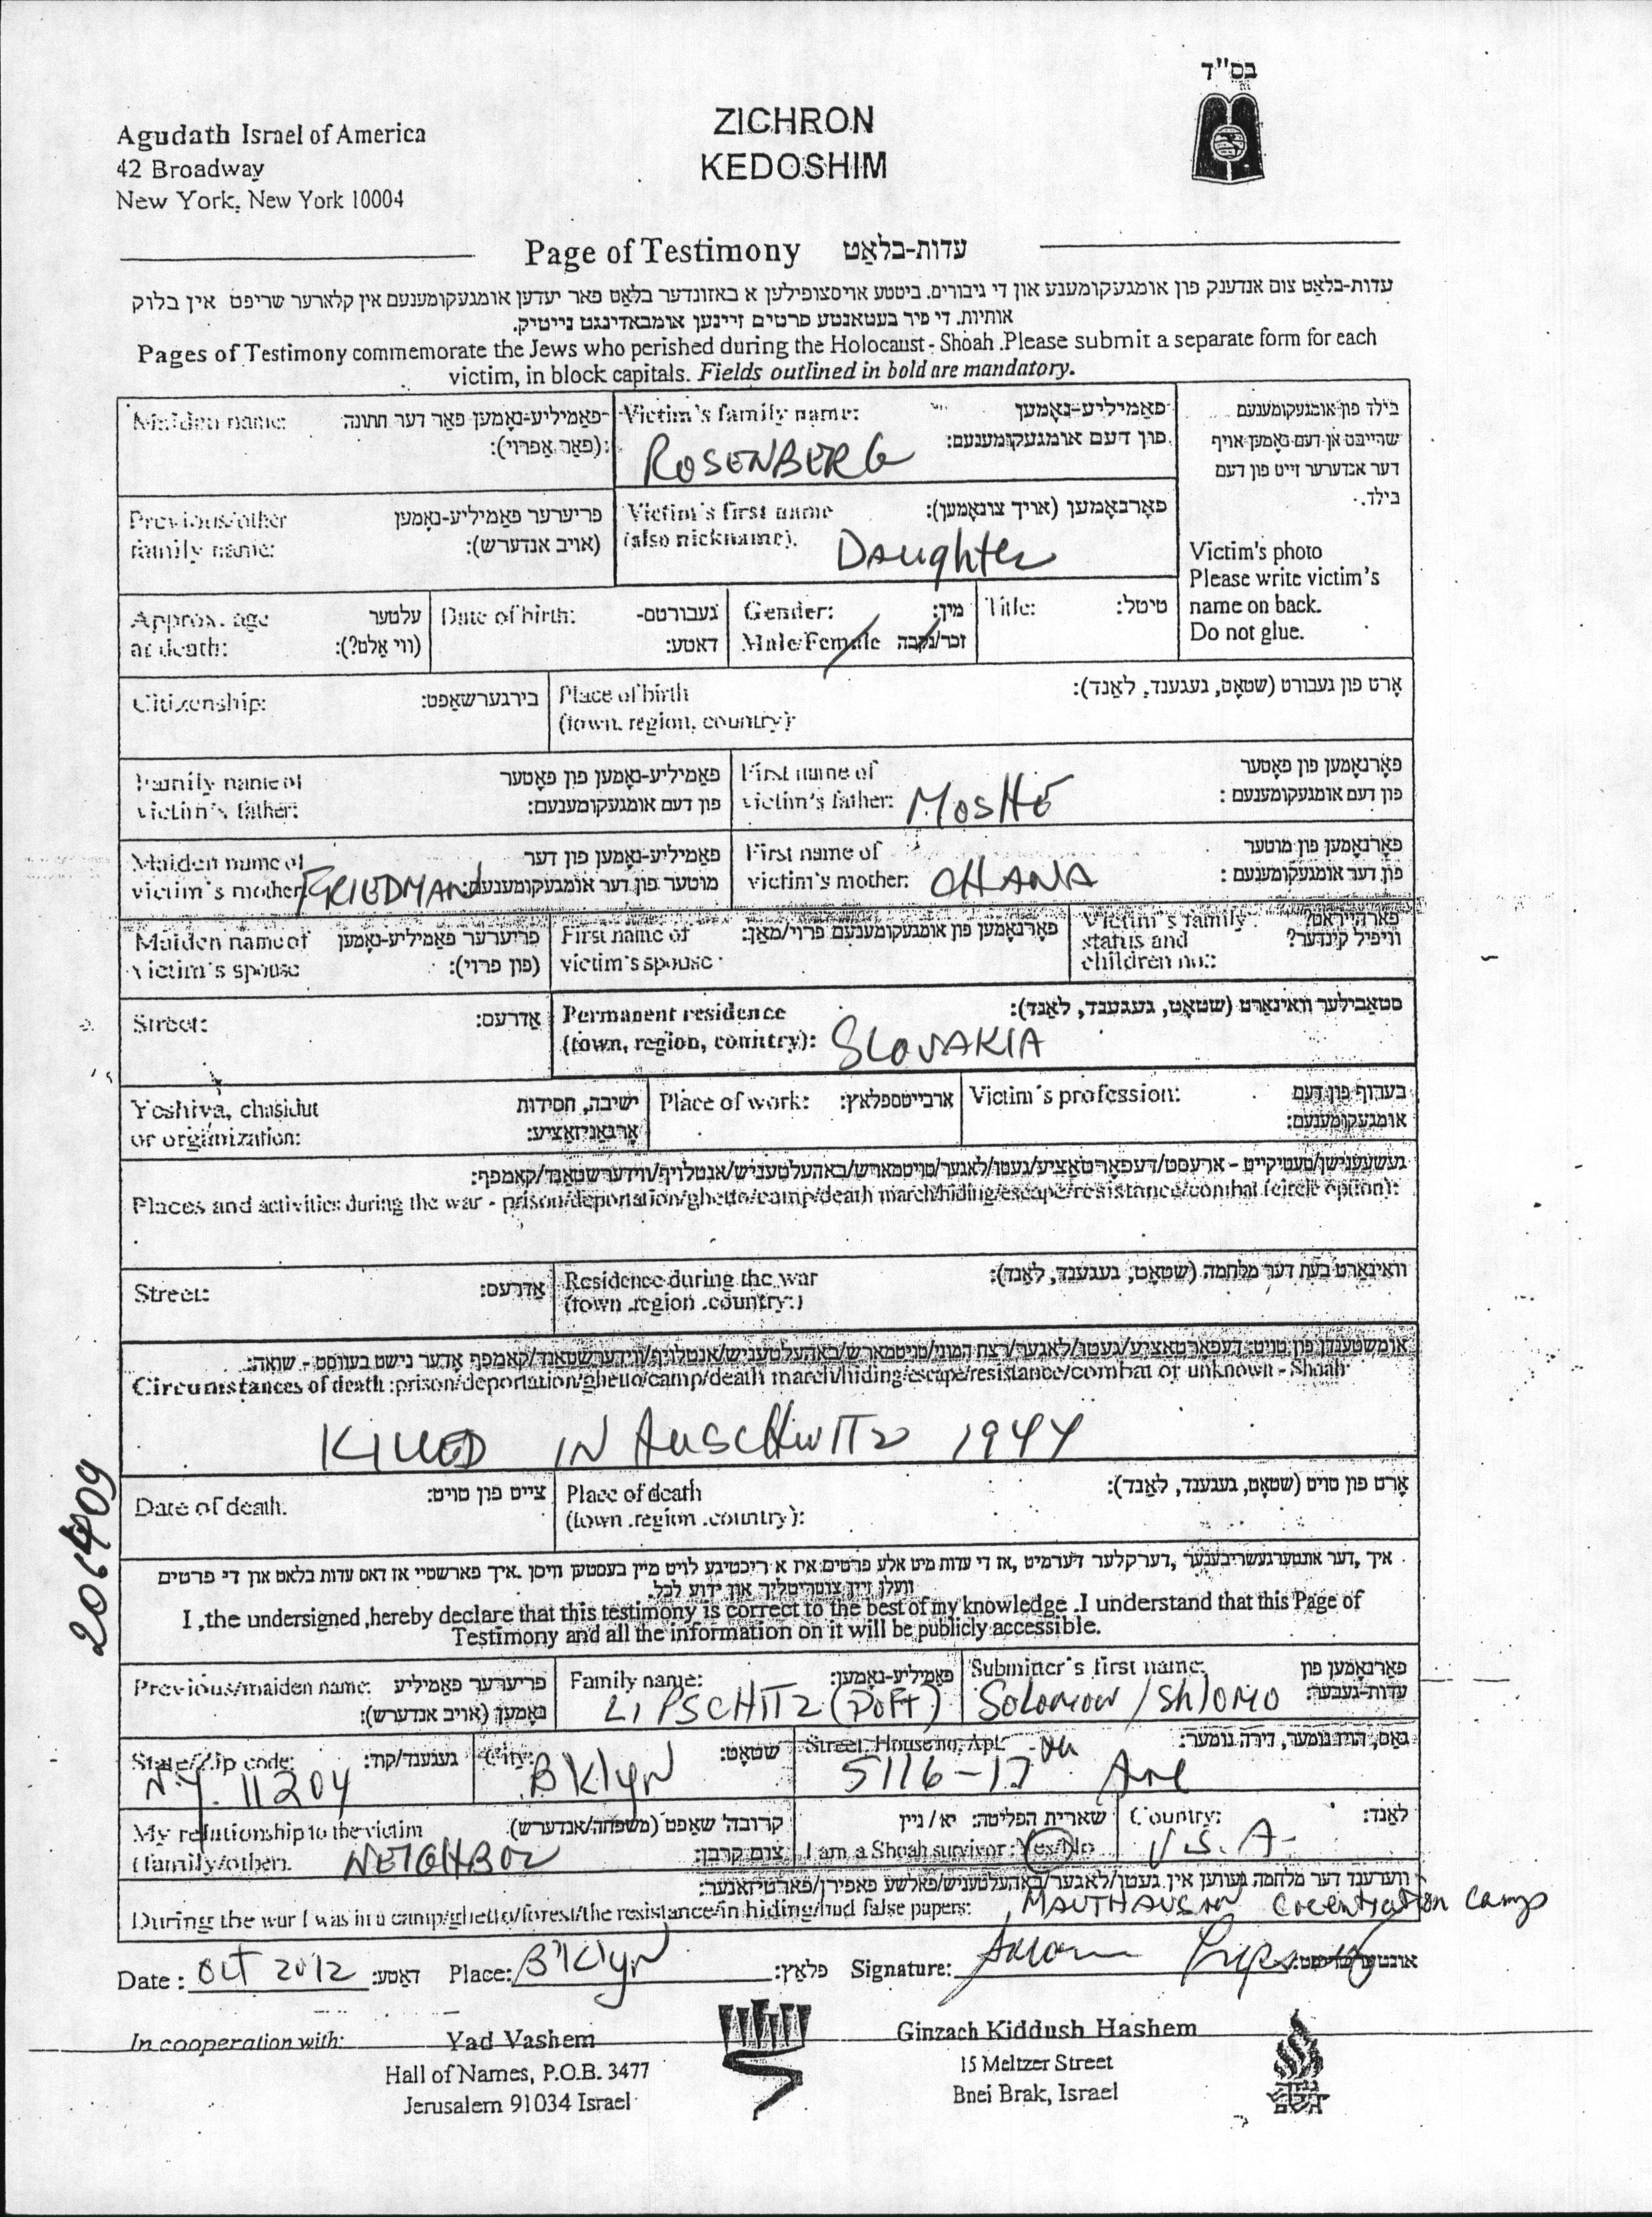 בס"ד
Agudath Israel of America
42 Broadway
New York, New York 10004
ZICHRON
KEDOSHIM
Page of Testimony עדות-בלאַט
עדות-בלאַט צום אנדענק פון אומגעקומענע און די גיבורים. ביטע אויסצופילען א באזונדער בלאַט פאר יעדען אומגעקומענעם אין קלארער שריפט אין בלוק
אותיות. די פיר בעטאנטע פרטים זיינען אומבאדינגט נייטיק.
Pages of Testimony commemorate the Jews who perished during the Holocaust - Shoah .Please submit a separate form for each
victim, in block capitals. Fields outlined in bold are mandatory.
Maiden name: פאַמיליע-נאָמען פאר דער חתונה
(פאַר אַפרוי):
Victim's family name: פאַמיליע-נאָמען
פון דעם אומגעקומענעם:
ROSENBERG
בילד פון אומגעקומענעם
שרייבט אן דעם נאָמען אויף
דער אנדערער זייט פון דעם
בילד.
Victim's photo
Please write victim's
name on back.
Do not glue.
Previous/other פריערער פאַמיליע-נאָמען
family name: (אויב אנדערש):
Victim's first name פאָרנאָמען (אויך צונאָמען):
(also nickname).
Daughter
Approx. age עלטער
at death: (ווי אַלט?):
Date of birth: געבורטס-
דאַטע:
Gender: מין:
Male/Female זכר/נקבה
Title: טיטל:
Citizenship: בירגערשאַפט:
Place of birth אָרט פון געבורט (שטאָט, געגענד, לאַנד):
(town, region, country):
Family name of פאַמיליע-נאָמען פון פאָטער
victim's father: פון דעם אומגעקומענעם:
First name of פאָרנאָמען פון פאָטער
victim's father: MOSHE פון דעם אומגעקומענעם :
Maiden name of פאַמיליע-נאָמען פון דער
victim's mother: FRIEDMAN מוטער פון דער אומגעקומענעם:
First name of פאָרנאָמען פון מוטער
victim's mother: CHANA פון דער אומגעקומענעם :
Maiden name of פריערער פאַמיליע-נאָמען
victim's spouse (פון פרוי):
First name of פאָרנאָמען פון אומגעקומענעם פרוי/מאַן:
victim's spouse
Victim's family פארהייראט?
status and וויפיל קינדער?
children no.:
Street: אַדרעס:
Permanent residence סטאַבילער וואוינארט (שטאָט, געגענד, לאַנד):
(town, region, country): SLOVAKIA
Yeshiva, chasidut ישיבה, חסידות
or organization: אָרגאַניזאַציע:
Place of work: ארבייטספלאץ:
Victim's profession: בערוף פון דעם
אומגעקומענעם:
געשעענישן/טעטיקייט - ארעסט/דעפאָרטאַציע/געטו/לאַגער/טויטמארש/באהעלטעניש/אנטלויף/ווידערשטאַנד/קאַמפף:
Places and activities during the war - prison/deportation/ghetto/camp/death march/hiding/escape/resistance/combat (circle option):
Street: אַדרעס:
Residence during the war וואוינארט בעת דער מלחמה (שטאָט, געגענד, לאַנד):
(town .region .country:)
אומשטענדן פון טויט: דעפאָרטאַציע/געטו/לאַגער/רצח המוני/טויטמארש/באַהעלטעניש/אנטלויף/ווידערשטאַנד/קאַמפף אָדער נישט בעוואוסט - שואה:
Circumstances of death :prison/deportation/ghetto/camp/death march/hiding/escape/resistance/combat or unknown - Shoah
KILLED IN AUSCHWITZ 1944
Date of death. צייט פון טויט:
Place of death אָרט פון טויט (שטאָט, געגענד, לאַנד):
(town .region .country):
איך ,דער אונטערגעשריבענער ,דערקלער דערמיט ,אז די עדות מיט אלע פרטים איז א ריכטיגע לויט מיין בעסטען וויסן .איך פארשטיי אז דאס עדות בלאט און די פרטים
וועלן זיין צוטריטליך און ידוע לכל.
I ,the undersigned ,hereby declare that this testimony is correct to the best of my knowledge .I understand that this Page of
Testimony and all the information on it will be publicly accessible.
Previous/maiden name: פריערער פאַמיליע
נאָמען (אויב אנדערש):
Family name: פאַמיליע-נאָמען:
LIPSCHITZ (DOFT)
Submitter's first name: פאָרנאָמען פון
עדות-געבער:
Solomon / Shlomo
State/Zip code: געגענד/קוד:
N.Y. 11204
City: שטאָט:
BKlyN
Street, House no, Apt. גאַס, הויז נומער, דירה נומער:
5116-17 Ave
My relationship to the victim קרובה' שאַפט (משפחה/אנדערש)
(family/other). NEIGHBOR צום קרבן:
שארית הפליטה: יא / ניין
I am a Shoah survivor : Yes/No
Country: לאַנד:
U.S.A.
ווערענד דער מלחמה געווען אין געטו/לאגער/באַהעלטעניש/פאלשע פאפירן/פארטיזאנער:
During the war I was in a camp/ghetto/forest/the resistance/in hiding/had false papers: MAUTHAUSAN Cocentration Camp
Date : Oct 2012 דאַטע: Place: B'Klyn פלאַץ: Signature:
206409
In cooperation with: Yad Vashem
Hall of Names, P.O.B. 3477
Jerusalem 91034 Israel
Ginzach Kiddush Hashem
15 Meltzer Street
Bnei Brak, Israel